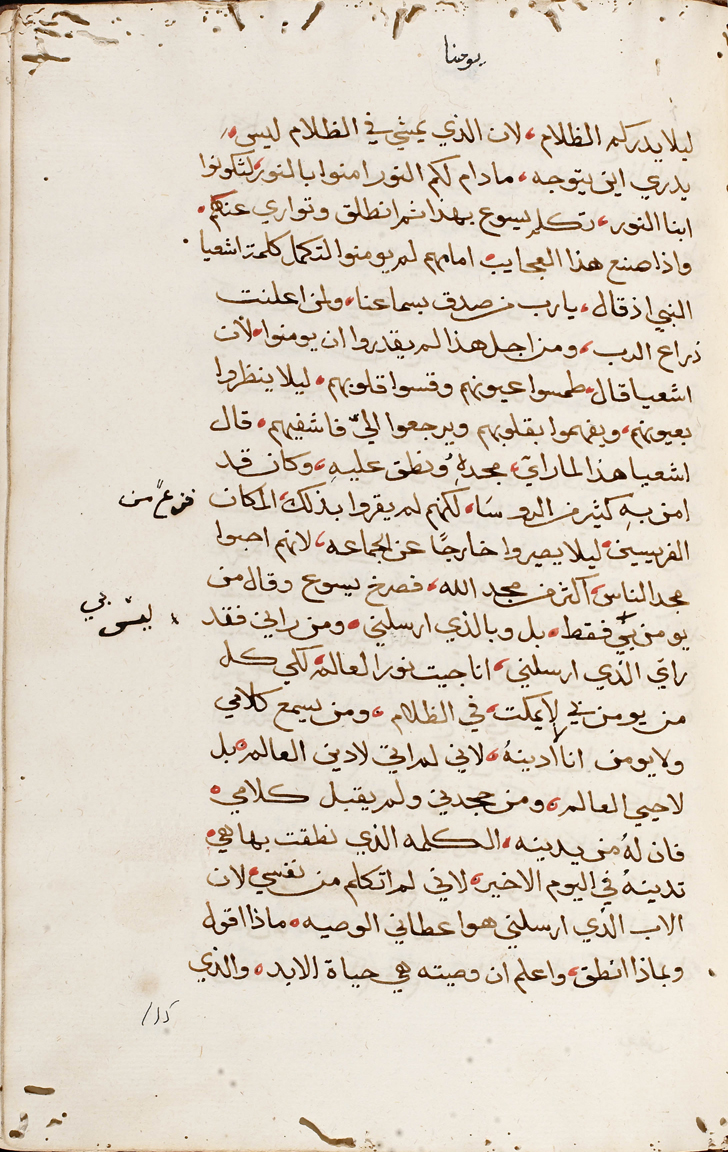 يوحنا
ليلا يدرككم الظلام، لان الذي يمشي في الظلام ليس
يدري اين يتوجه، مادام لكم النور امنوا بالنور لتكونوا
ابنا النور، تكلم يسوع بهذا ثم انطلق وتواري عنهم.
واذا صنع هذا العجايب امامهم لم يومنوا لتكمل كلمة اشعيا
النبي اذ قال، يارب من صدق بسماعنا، ولمن اعلنت
ذراع الرب، ومن اجل هذا لم يقدروا ان يومنوا، لان
اشعيا قال، طمسوا عيونهم وقسوا قلوبهم، ليلا ينظروا
بعيونهم، ويفهموا بقلوبهم ويرجعوا اليّ فاشفيهم، قال
اشعيا هذا لما راي، مجدهُ ونطق عليهِ، وكان قد
امن بهِ كثير من الروسَا، لكنهم لم يقروا بذلك، لمكان
فزعًا من
الفريسيين، ليلا يصيروا خارجًا عن الجماعه، لانهم احبوا
مجد الناس، اكثر من مجد الله، فصرخ يسوع وقال من
يومن بي فقط، بل وبالذي ارسلني، ومن راني فقد
ليس بي
راي الذي ارسلني، انا جيت نورا لعالم، لكي كل
من يومن في لا يمكت، في الظلام، ومن يسمع كلامي
ولا يومن انا لا ادينهُ، لاني لم اتي لادين العالم، بل
لاحيي العالم، ومن جحدني ولم يقبل كلامي،
فان لهُ من يدينه، الكلمه الذي نطقت بها هي،
تدينهُ في اليوم الاخير، لاني لم اتكلم من نفسي، لان
الاب الذي ارسلني هو اعطاني الوصيه، ماذا اقول
وبماذا انطق، واعلم ان وصيته هي حياة الابد، والذي